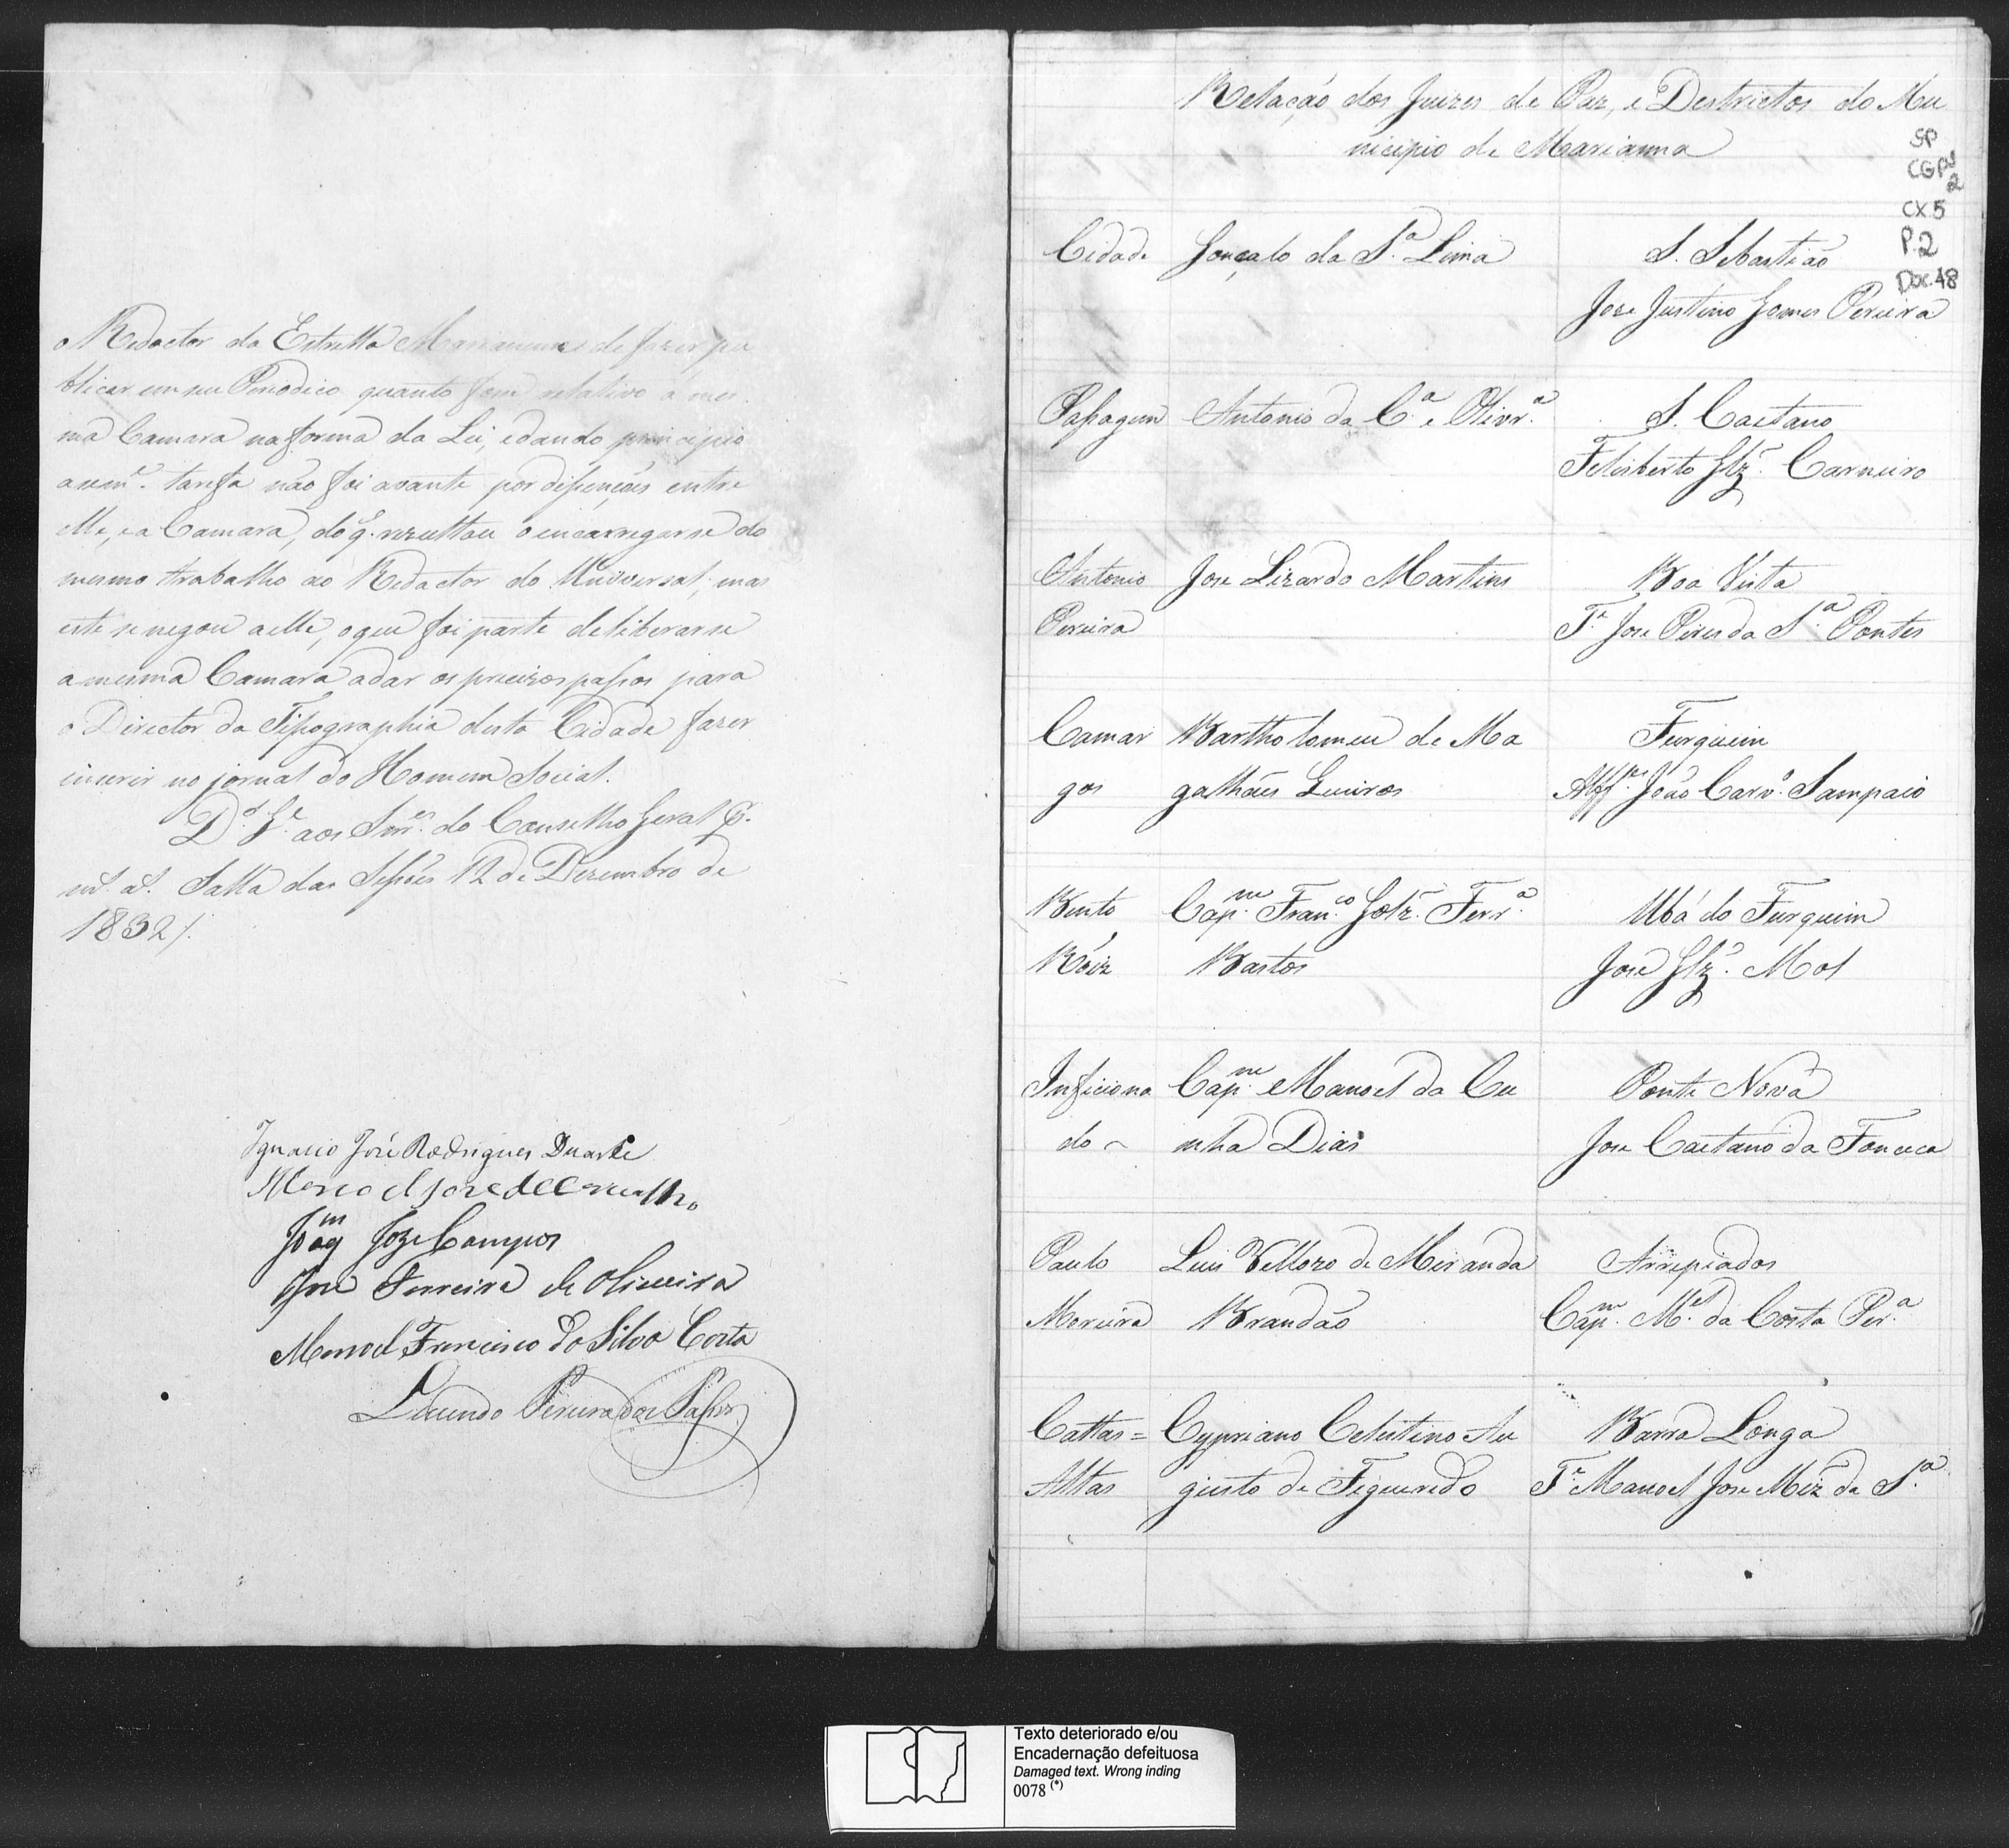 o Redactor da Estrella Mariannense de fazer pu
blicar em seu Periodico quanto fosse relativo a mes
ma Camara na forma da Lei, e dando principio
a esm.ᵃ tarefa não foi avante por dispenções entre
elle, e a Camara, do q. rezultou o encarregarse do
mesmo trabalho ao Redactor do Universal; mas
este se negou a elle, o que foi parte deliberarse
a mesma Camara a dar os precizos passos para
o Director da Tipographia desta Cidade fazer
inserir no jornal do Homem Social.
D.ˢ G.ᵉ aos Snr.ᵉˢ do Conselho Geral P.
m.ˢ a.ˢ Salla das Sessões 12 de Dezembro de
1832/.
Ignacio José Rodrigues Duarte
Manoel Joze de Carvalho
Joaqᵐ Joze Campos
José Ferreira de Oliveira
Manoel Francisco da Silva Costa
Pereira dos Passos
Relação dos Juizes de Paz, e Destrictos do Mu
nicipio de Marianna
SP
CGP¹
2
CX.5
P.2
Doc.48
Cidade Gonçalo da S.ᵃ Lima S. Sebastião
Joze Justino Gomes Pereira
Passagem Antonio da C.ᵃ e Olivr.ᵃ S. Caetano
Felisberto Glz.ᵉˢ Carneiro
Antonio Joze Lizardo Martins Boa Vista
Pereira T.ᵉ Joze Pires da S.ᵃ Pontes
Camar Bartholomeu de Ma Furquim
gos galhães Queiros Alff.ᵉˢ João Carv.ᵒ Sampaio
Bento Cap.ᵐ Fran.ᶜᵒ Golz.ˢ Ferr.ᵃ Ubá do Furquim
Róiz Bastos José Glz.ˢ Mol
Inficiona Cap.ᵐ Manoel da Cu Ponte Nova
do ~ nha Dias Joze Caetano da Fonceca
Paulo Luis Vellozo de Miranda Arripiados
Moreira Brandão Cap.ᵐ M.ᵉˡ da Costa Per.ᵃ
Cattas = Cypriano Celestino Au Barra Longa
Altas gusto de Figueredo T.ᵉ Manoel Joze Miz da S.ᵃ
Texto deteriorado e/ou
Encadernação defeituosa
Damaged text. Wrong inding
0078 (*)